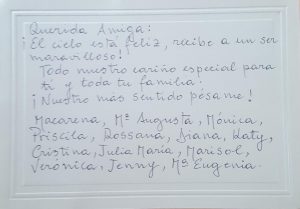 Querida Amiga:
¡El cielo está feliz, recibe a un ser
maravilloso!
Todo nuestro cariño especial para
tí y toda tu familia.
¡Nuestro más sentido pésame!
Macarena, Mª Augusta, Mónica,
Priscila, Rossana, Diana, Katy,
Cristina, Julia María, Marisol,
Verónica, Jenny, Mª Eugenia.